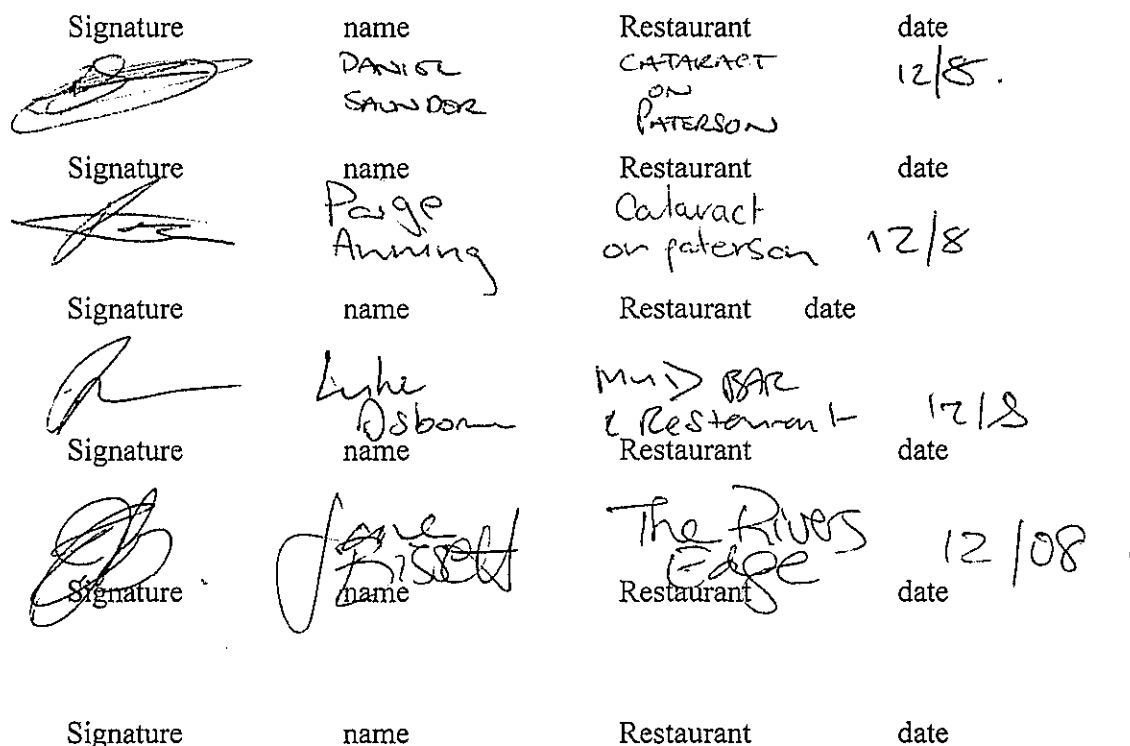 Signature name Restaurant date
DANIEL CATARACT 12/8.
SAUNDER ON
PATERSON
Signature name Restaurant date
Paige Cataract
Anning on paterson 12/8
Signature name Restaurant date
Luke MUD BAR
Osborne & Restaurant 12/8
Signature name Restaurant date
The Rivers
Edge 12/08
Signature name Restaurant date
Signature name Restaurant date